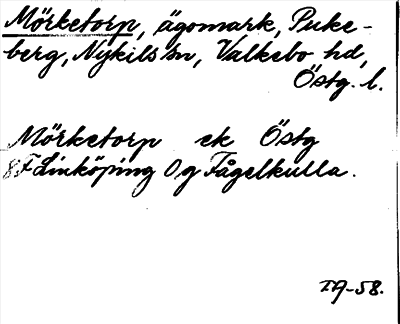 Mörketorp, ägomark, Puke-
berg, Nykils sn, Valkebo hd,
Östg. l.
Mörketorp ek Östg
8F Linköping 0 g Fågelkulla.
IA-58.